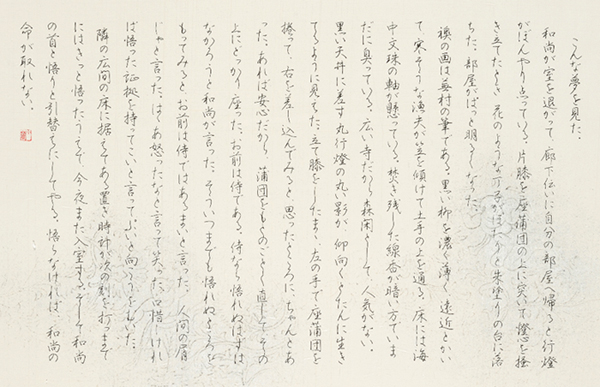 こんな夢を見た。
和尚が室を退がって、廊下伝いに自分の部屋へ帰ると行燈
がぼんやり点っている。片膝を座蒲団の上に突いて、燈心を掻
き立てたとき、花のような丁子がぱたりと朱塗りの台に落
ちた。部屋がぱっと明るくなった。
襖の画は蕪村の筆である。黒い柳を濃く薄く、遠近とかい
て、寒そうな漁夫が笠を傾けて土手の上を通る。床には海
中文珠の軸が懸っている。焚き残した線香が暗い方でいま
だに臭っている。広い寺だから森閑として、人気がない。
黒い天井に差す丸行燈の丸い影が、仰向くとたんに生き
てるように見えた。立て膝をしたまま、左の手で座蒲団を
捲って、右を差し込んでみると、思ったところに、ちゃんとあ
った。あれば安心だから、蒲団をもとのごとく直して、その
上にどっかり座った。お前は侍である。侍なら悟れぬはずは
なかろうと和尚が言った。そういつまでも悟れぬところを
もってみると、お前は侍ではあるまいと言った。人間の屑
じゃと言った。ははあ怒ったなと言って笑った。口惜しけれ
ば悟った証拠を持ってこいと言ってぷいと向こうをむいた。
隣の広間の床に据えてある置き時計が次の刻を打つまで
にはきっと悟ってみせる。今夜また入室する。そして和尚
の首と悟りと引替えにしてやる。悟らなければ、和尚の
命が取れない。